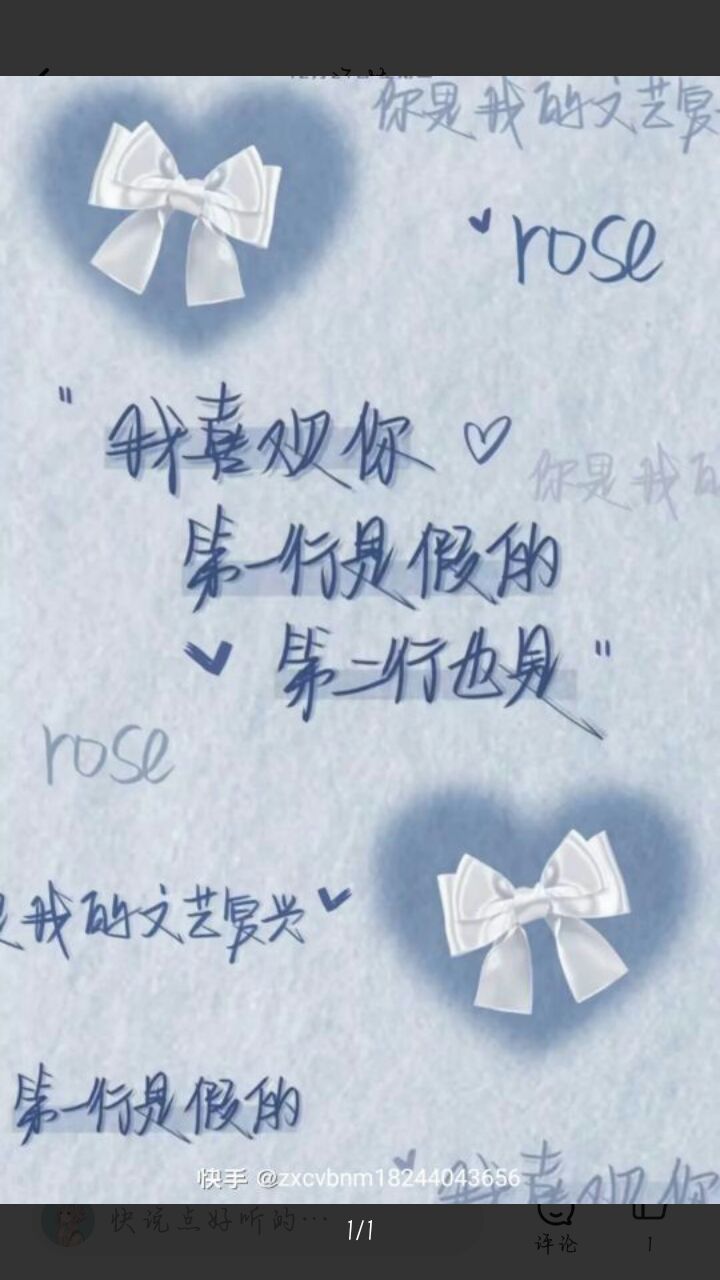 你是我的文艺复
rose
"我喜欢你
你是我的
第一行是假的
第二行也是"
rose
是我的文艺复兴
第一行是假的
快手 @zxcvbnm18244043656
我喜欢你
快说点好听的…
1/1
评论
1